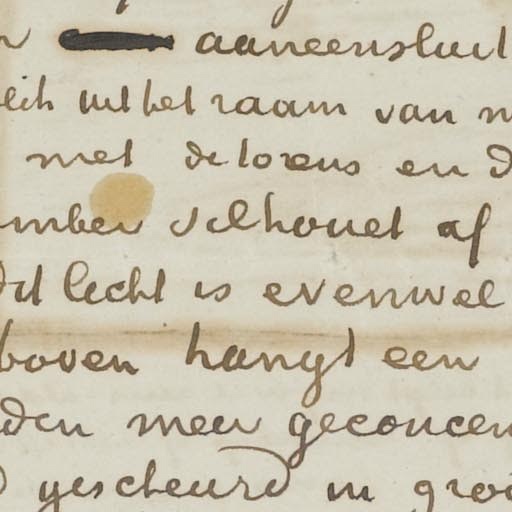 aaneensluit
uit het raam van m
met de torens en d
mber silhouet af
dit licht is evenwel
boven hangt een
den meer geconcen
gescheurd in groo